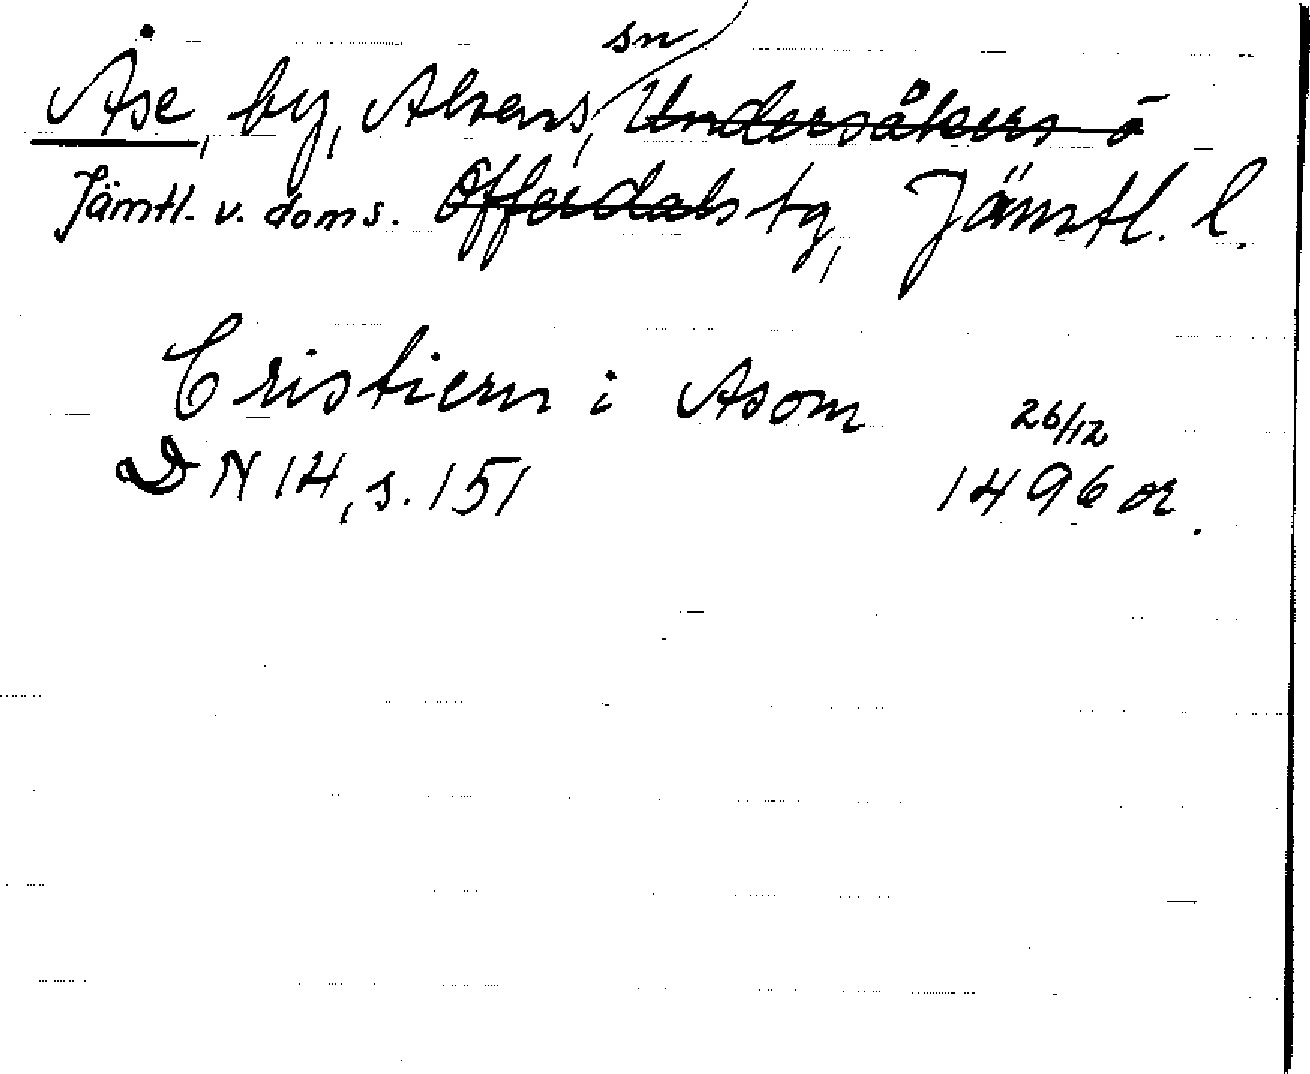 Åse, by, Alsens sn, Undersåkers o
Jämtl. v. doms. Offerdals tg, Jämtl. l.
Cristiern i Asom
26/12
DN 14, s. 151 1496 or.